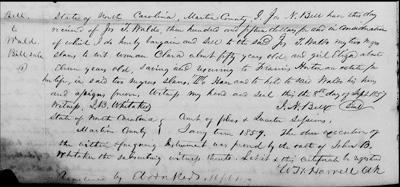 Bill
to
Waldo
Bill Sale
State of North Carolina, Martin County I, Jos N. Bell have this day
received of Jos T. Waldo, three hundred and fifteen dollars for and in consideration
of which I do hereby bargain and sell to the said Jos T. Waldo my two negro
slaves to wit woman Clara about fifty years old, and girl Eliza about
years old, saving and reserving to an estate for
her life, in said two negroes slaves, To Have and to hold to him Waldo his heirs
and assigns forever, Witness my hand and seal this the 8th day of Sept 1857
Witness, J. B. Whitaker J. N. Bell Seal
State of North Carolina Court of pleas & Quarter Sessions,
Martin County Jany term 1859. The due execution of
the within foregoing instrument was proved by the oath of John B.
Whitaker the subscribing witness thereto. Let it & this certificate be registered
W. H. Harrell Clk